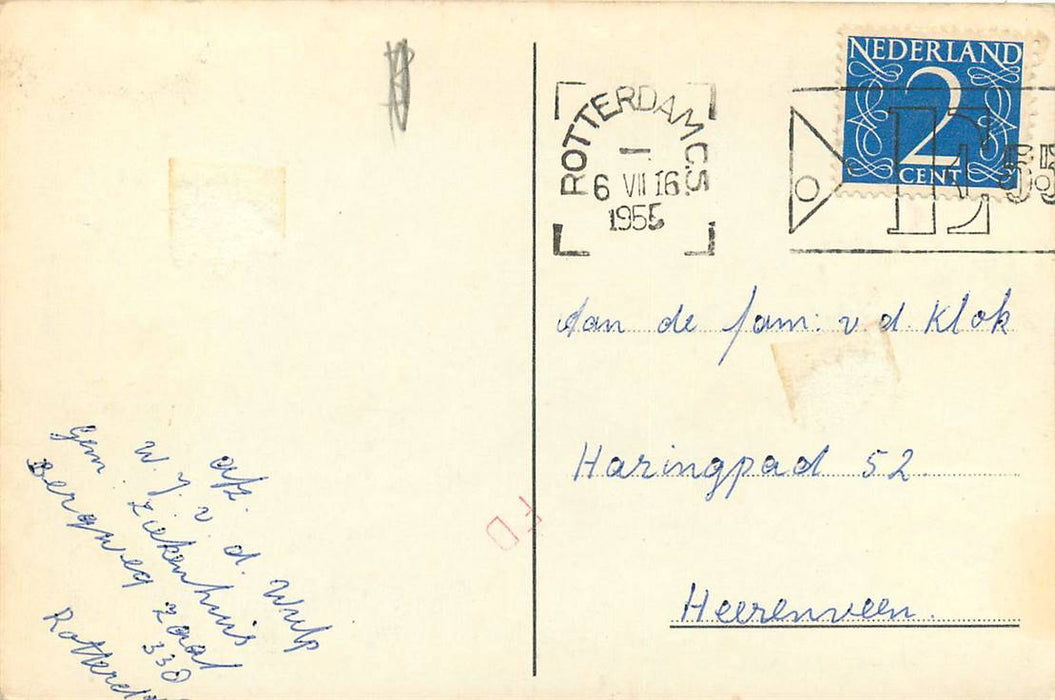 NEDERLAND
2
CENT
ROTTERDAM C.S.
6 VII 16
1955
E 55
Aan de fam: v d. Klok
Haringpad 52.
Heerenveen.
afz.
W. J. v d. Wulp
Gem Ziekenhuis
Bergweg zaal 330
FD